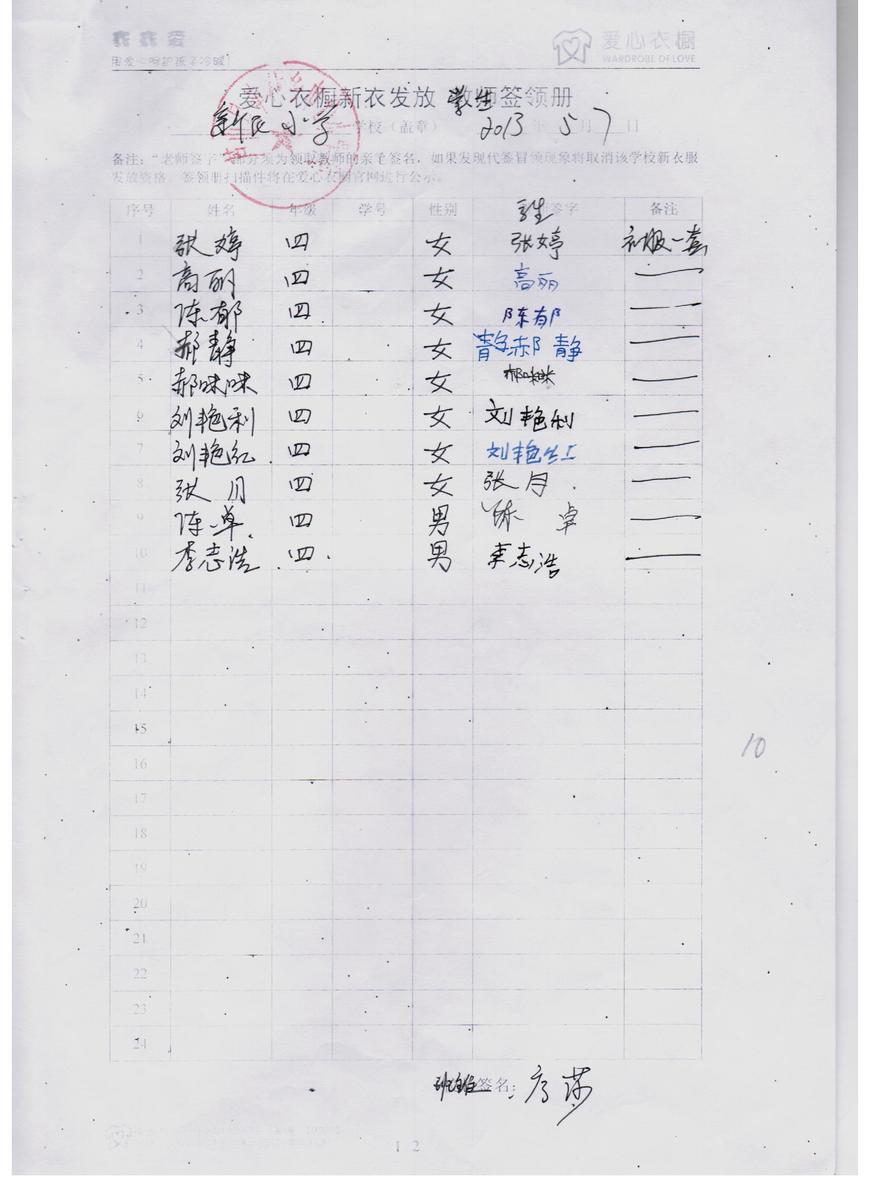 衣衣爱
爱心衣橱
用爱心呵护孩子冷暖
WARDROBE OF LOVE
爱心衣橱新衣发放 学生 教师签领册
新民小学 学校（盖章） 2013年5月7日
备注："老师签字"部分须为领取教师的亲笔签名，如果发现代签冒领现象将取消该学校新衣服
发放资格。签领册扫描件将在爱心衣橱官网进行公示。
序号 姓名 年级 学号 性别 学生签字 备注
1 张婷 四 女 张婷 衣服一套
2 高丽 四 女 高丽 —
3 陈郁 四 女 陈郁 —
4 郝静 四 女 郝静 —
5 郝咪咪 四 女 郝咪咪 —
6 刘艳利 四 女 刘艳利 —
7 刘艳红 四 女 刘艳红 —
8 张月 四 女 张月 —
9 陈卓 四 男 陈卓 —
10 李志浩 四 男 李志浩 —
11
12
13
14
15
16
17
18
19
20
21
22
23
24
10
班主任签名：
12